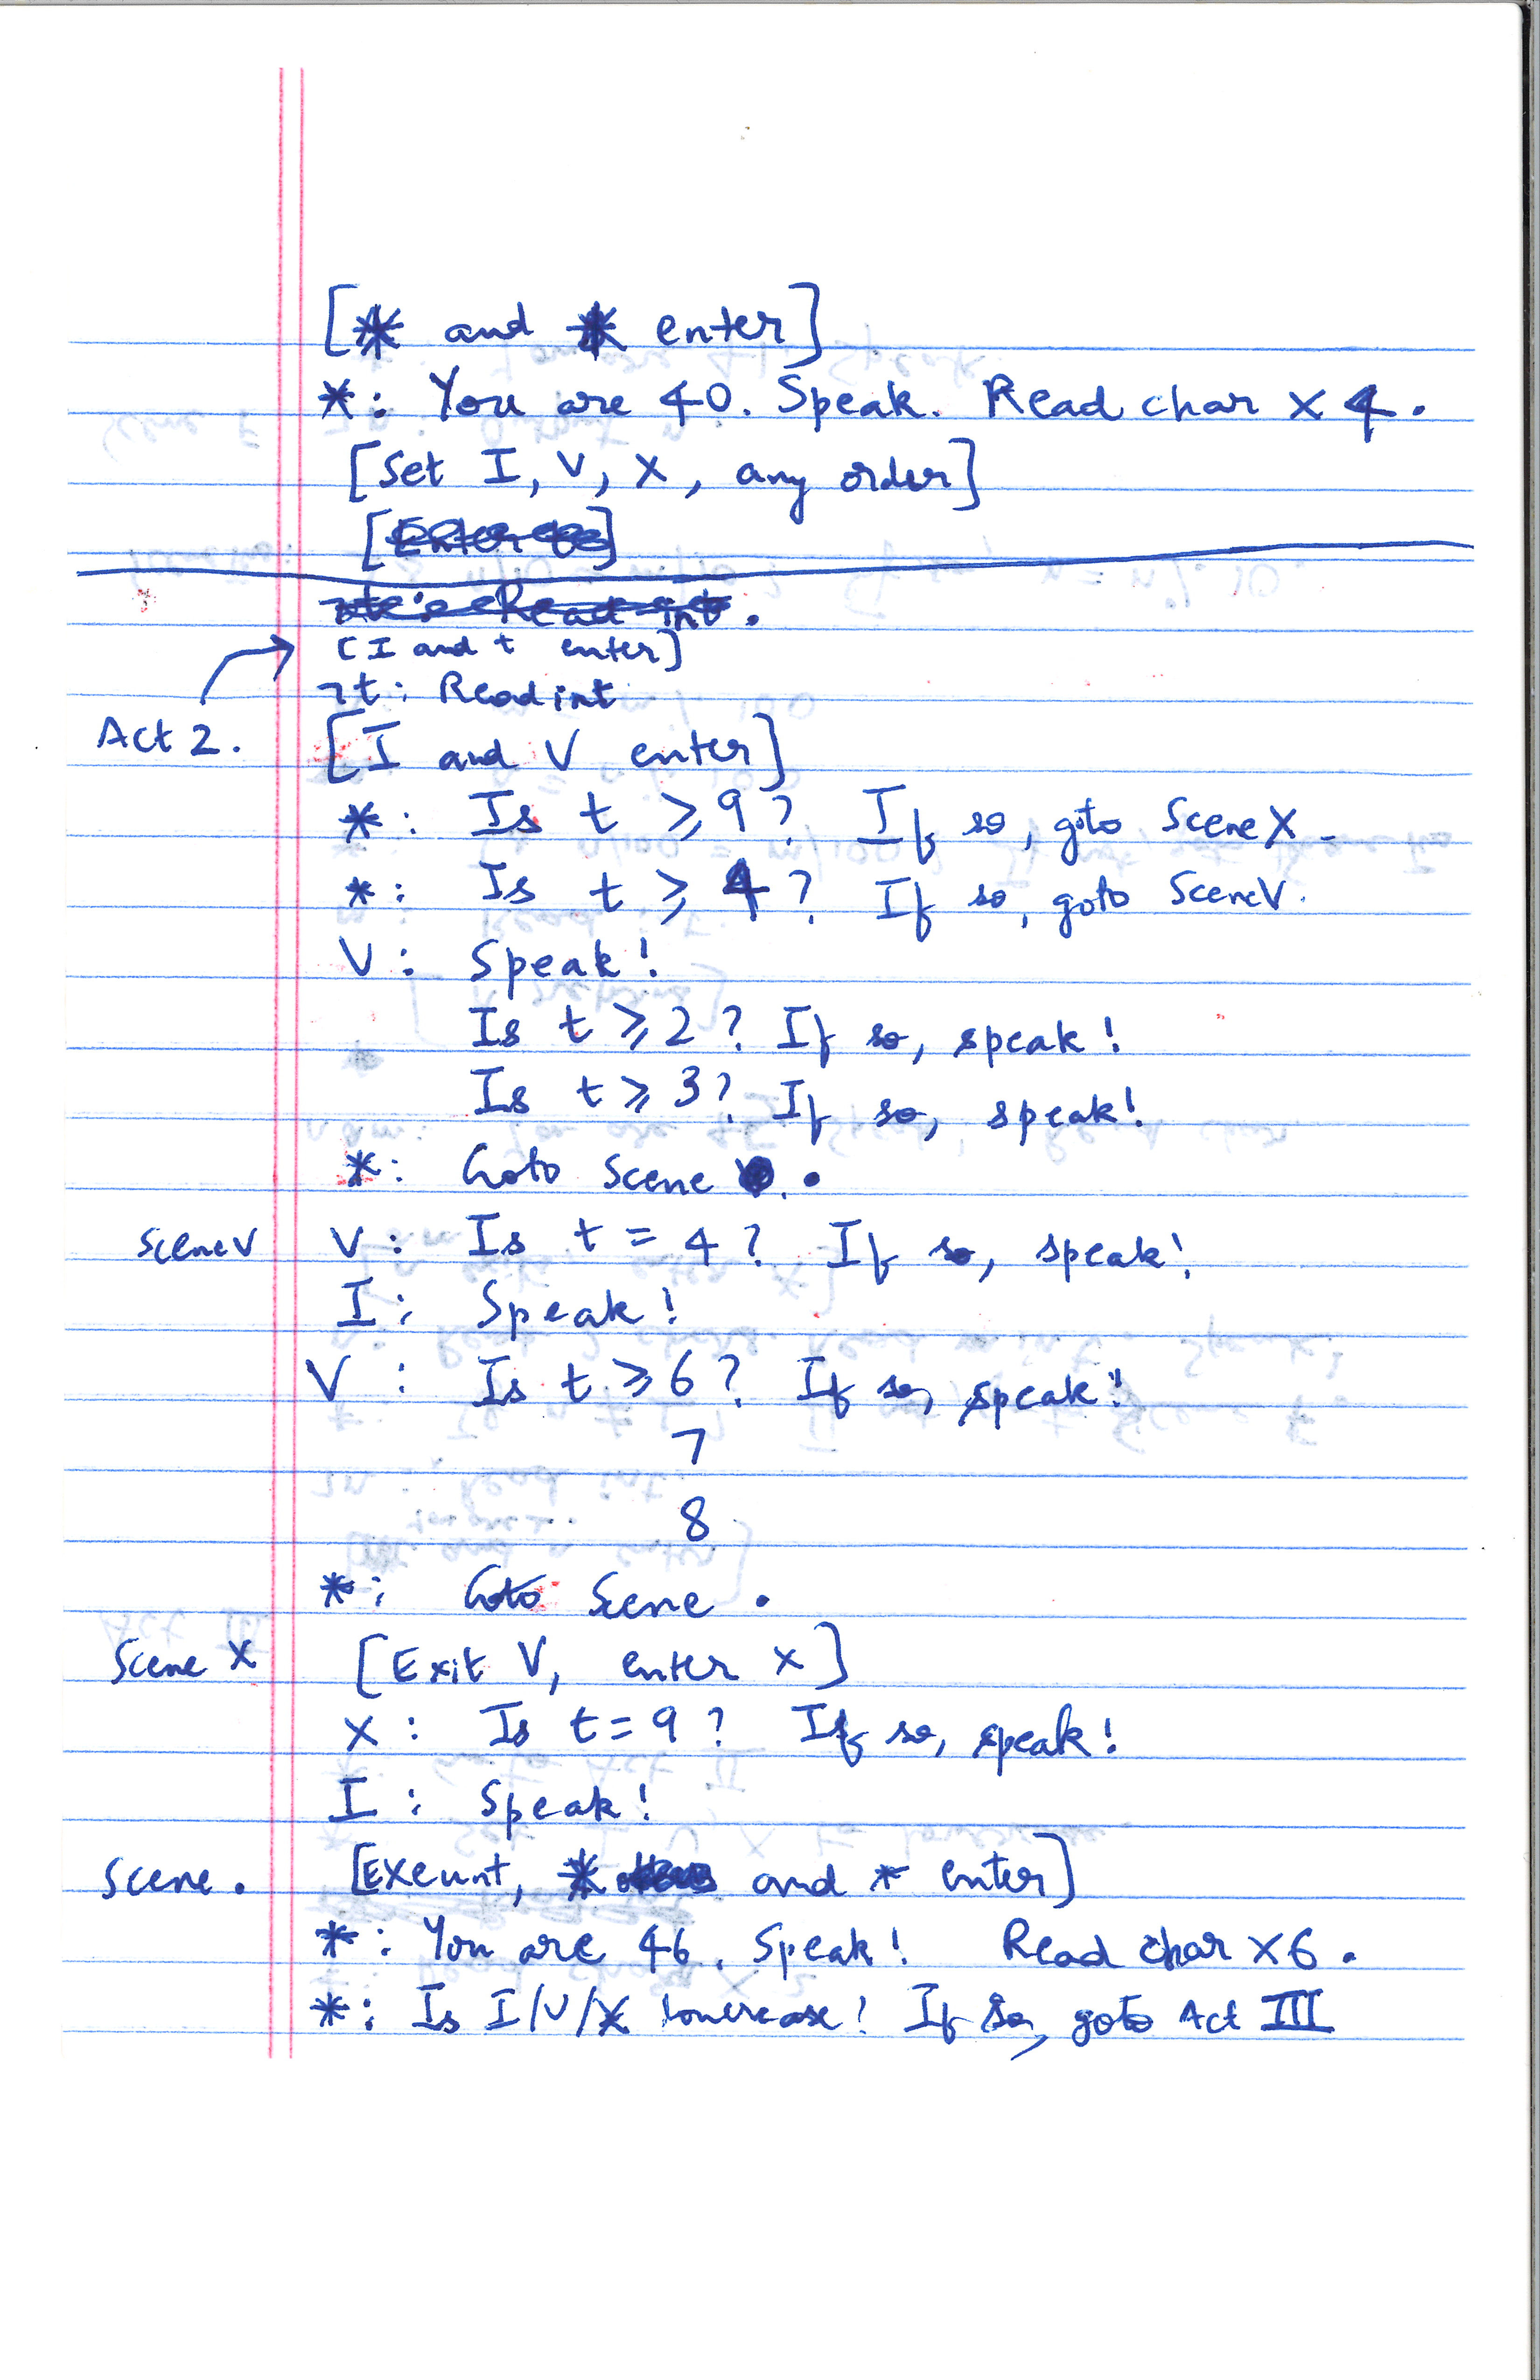 [* and * enter]
*: You are 40. Speak. Read char x 4.
[Set I, V, X, any order]
[I and t enter]
¬t: Read int
Act 2. [I and V enter]
*: Is t ≥ 9? If so, goto Scene X.
*: Is t ≥ 4? If so, goto Scene V.
V: Speak!
Is t ≥ 2? If so, speak!
Is t ≥ 3? If so, speak!
*: Goto Scene .
Scene V V: Is t = 4? If so, speak!
I: Speak!
V: Is t ≥ 6? If so, speak!
7
8
*: Goto Scene .
Scene X [Exit V, enter X]
X: Is t = 9? If so, speak!
I: Speak!
Scene. [Exeunt, * and * enter]
*: You are 46. Speak! Read char x 6.
*: Is I/V/X lowercase? If so, goto Act III